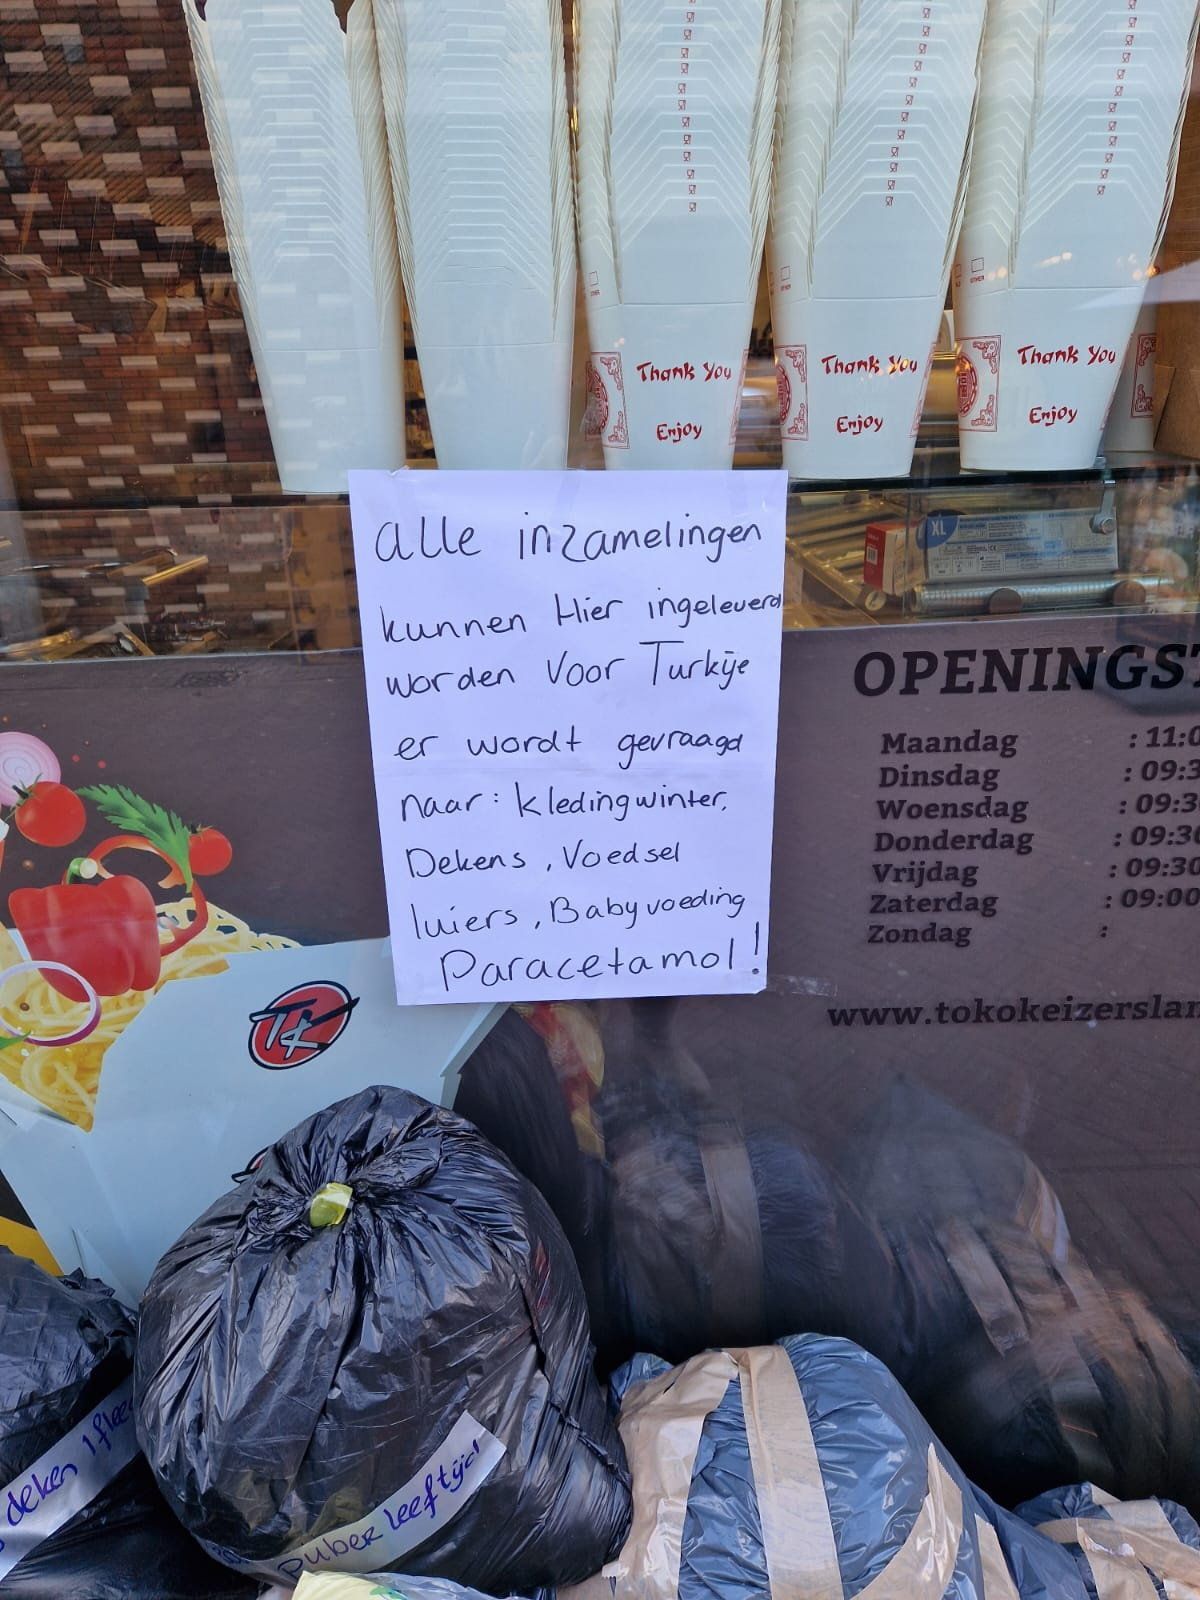 Thank You
Enjoy
Thank You
Enjoy
Thank You
Enjoy
XL
alle inzamelingen
kunnen Hier ingeleverd
worden Voor Turkije
er wordt gevraagd
naar: kledingwinter,
Dekens, Voedsel
luiers, Babyvoeding
Paracetamol!
OPENINGST
Maandag : 11:0
Dinsdag : 09:3
Woensdag : 09:3
Donderdag : 09:30
Vrijdag : 09:30
Zaterdag : 09:00
Zondag :
www.tokokeizerslan
TK
deken 1 flee
puber leeftijd